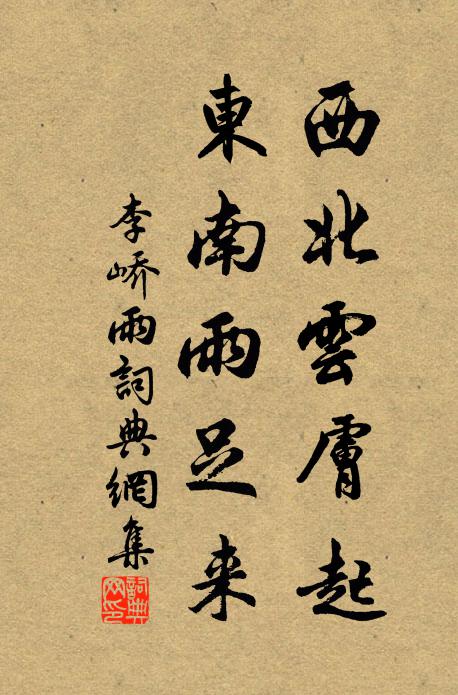 西北雲膚起
東南雨足来
李嶠雨詞典網集
詞典网印